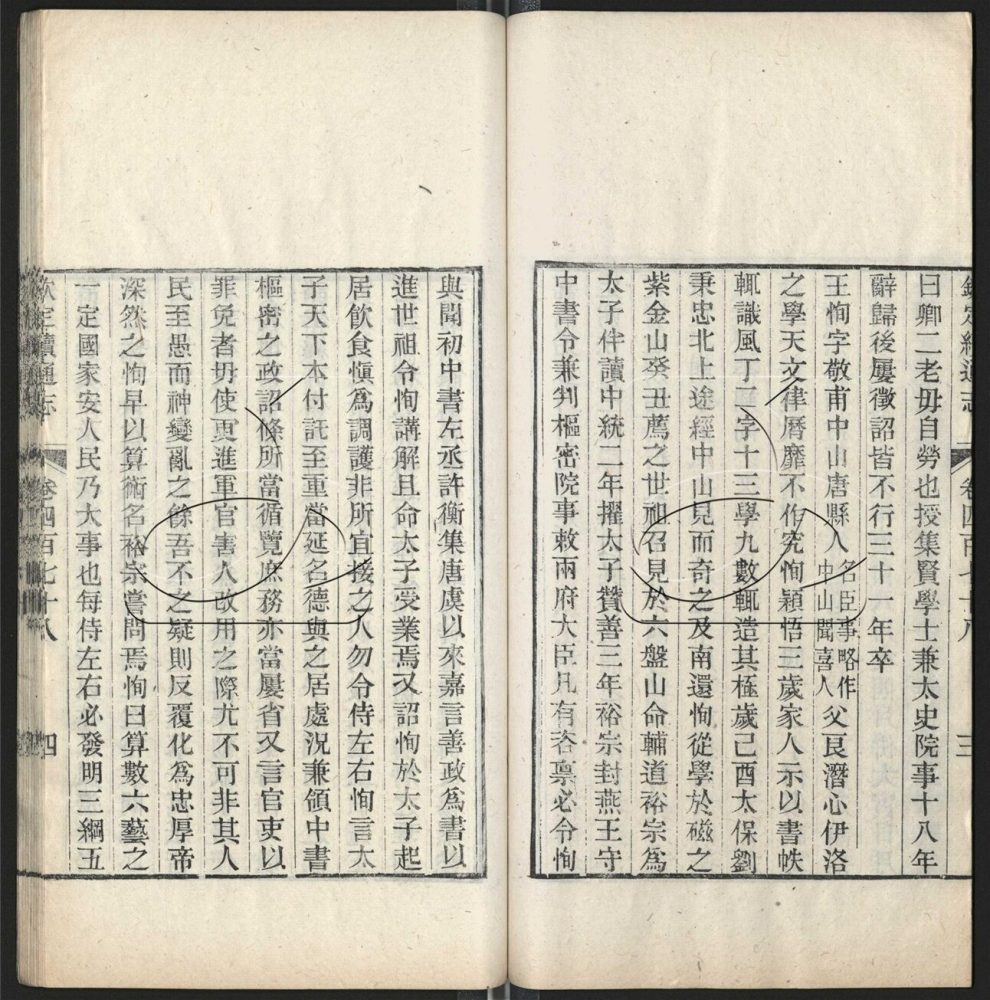 欽定續通志 卷四百七十八 三
曰卿二老毋自勞也授集賢學士兼太史院事十八年
辭歸後屢徵詔皆不行三十一年卒
王恂字敬甫中山唐縣人名臣事略作中山聞喜人父良潛心伊洛
之學天文律曆靡不作究恂穎悟三歲家人示以書帙
輒識風丁二字十三學九數輒造其極歲己酉太保劉
秉忠北上途經中山見而奇之及南還恂從學於磁之
紫金山癸丑薦之世祖召見於六盤山命輔道裕宗為
太子伴讀中統二年擢太子贊善三年裕宗封燕王守
中書令兼判樞密院事敕兩府大臣凡有咨稟必令恂
與聞初中書左丞許衡集唐虞以來嘉言善政為書以
進世祖令恂講解且命太子受業焉又詔恂於太子起
居飲食慎為調護非所宜接之人勿令侍左右恂言太
子天下本付託至重當延名德與之居處況兼領中書
樞密之政詔條所當循覽庶務亦當屢省又言官吏以
罪免者毋使更進軍官害人改用之際尤不可非其人
民至愚而神變亂之餘吾不之疑則反覆化為忠厚帝
深然之恂早以算術名裕宗嘗問焉恂曰算數六藝之
一定國家安人民乃大事也每侍左右必發明三綱五
欽定續通志 卷四百七十八 四